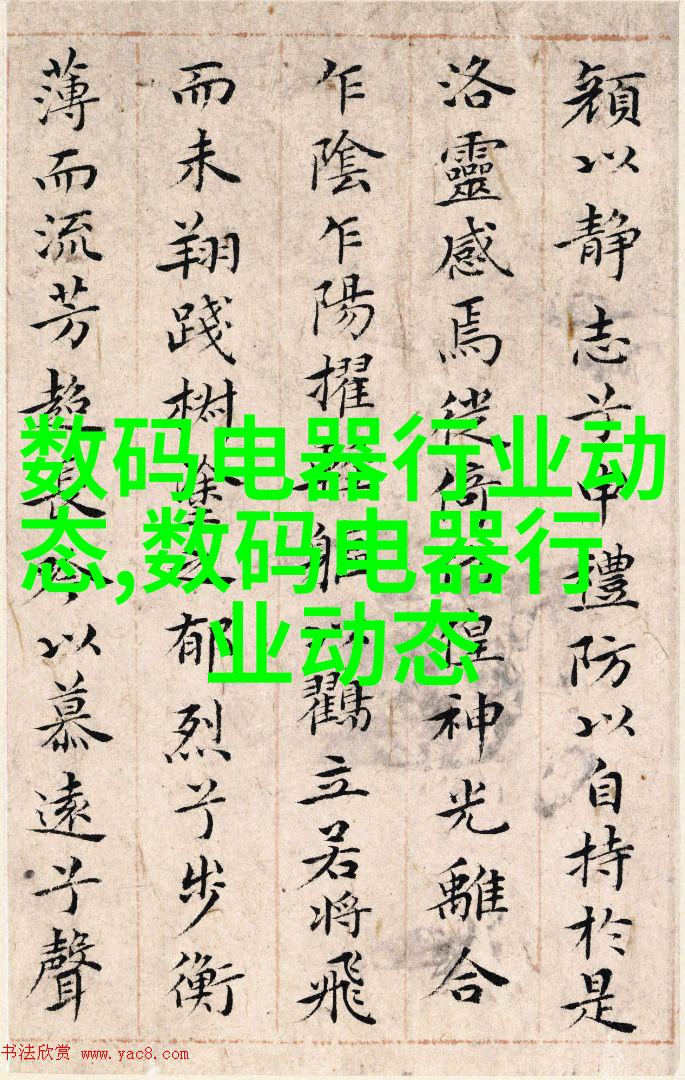 以静志兮申禮防以自持於是
洛靈感焉徙倚徨神光離合
乍陰乍陽擢立若将飛
而未翔踐椒塗郁烈兮步衡
薄而流芳超長以慕遠兮聲
数码电器行业动
态,数码电器行
业动态
书法欣赏 www.yac8.com